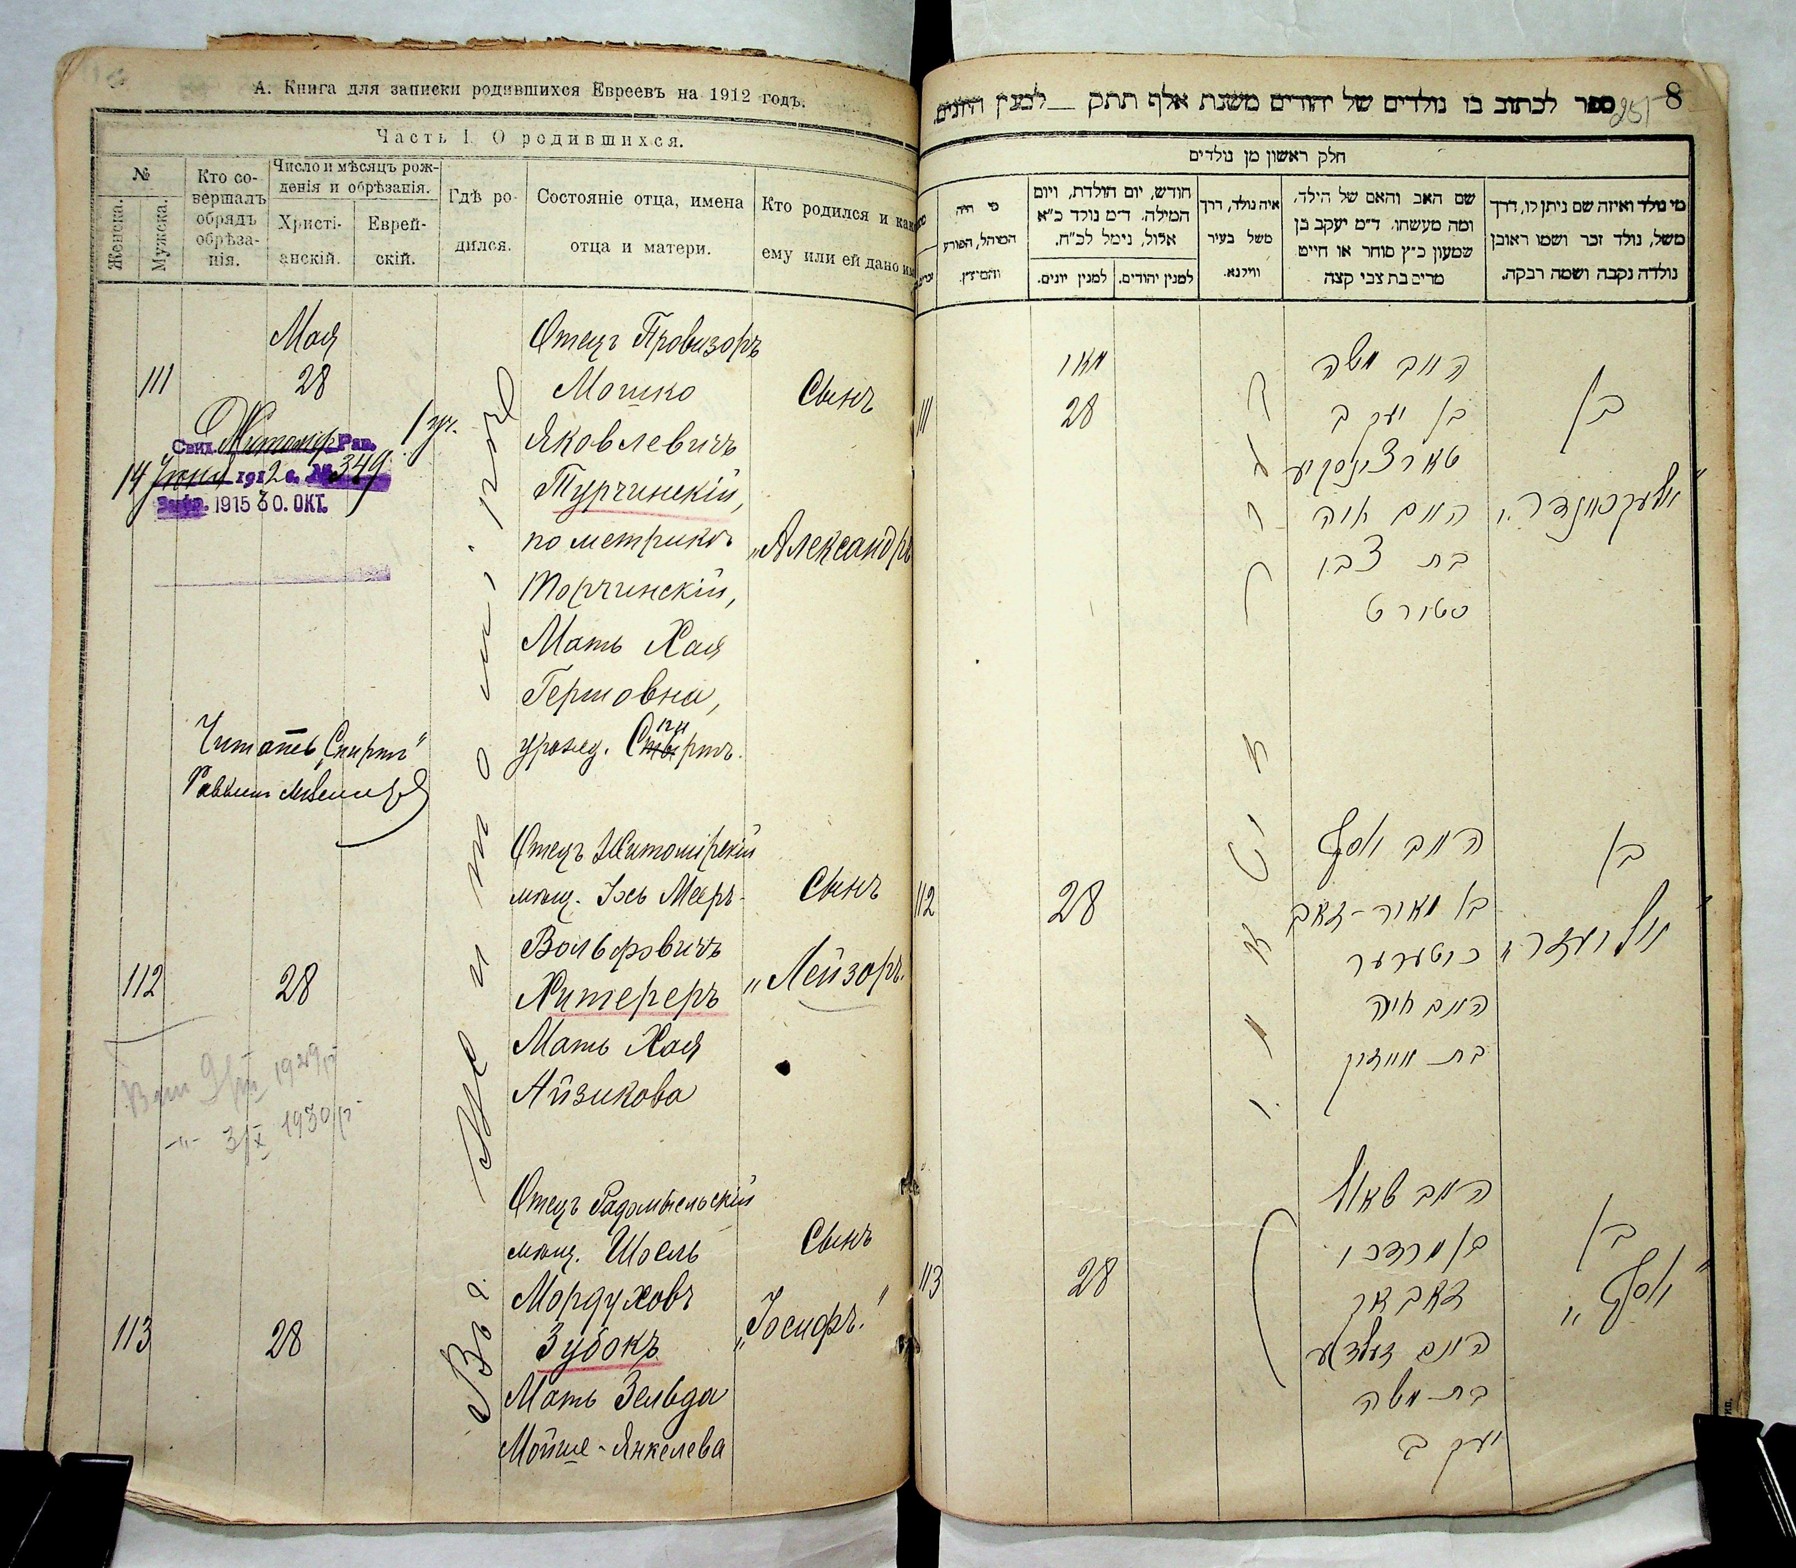 А. Книга для записки родившихся Евреевъ на 1912 годъ.
Часть I. О родившихся.
№
Женска.
Мужска.
Кто со-
вершалъ
обрядъ
обрѣза-
нія.
Число и мѣсяцъ рож-
денія и обрѣзанія.
Христі-
анскій.
Еврей-
скій.
Гдѣ ро-
дился.
Состояніе отца, имена
отца и матери.
Кто родился и как
ему или ей дано им
Мая
111
28
1 уч.
Свид. Житомір. Рав.
14 Іюня 1912 г. № 349
1915 30. ОКТ.
Отецъ Провизоръ
Мошко
Яковлевичъ
Турчинскій,
по метрикѣ
Торчинскій,
Мать Хая
Гершовна,
урожд. Спиртъ.
Сынъ
„Александръ
Читать „Спиртъ"
Раввинъ
Въ г. Житомірѣ
112
28
Отецъ Житомірскій
мѣщ. Іось Мееръ-
Вольфовичъ
Хитереръ
Мать Хая
Айзикова
Сынъ
„Лейзоръ.
9/III 1929 г.
-„- 3/X 1930 г.
113
28
Отецъ Радомысльскій
мѣщ. Шоель
Мордуховъ
Зубокъ
Мать Зельда
Мойше-Янкелева
Сынъ
„Іосифъ."
8
251
ספר לכתוב בו נולדים של יהודים משנת אלף תתק __ למנין היונים.
חלק ראשון מן נולדים
מי נולד ואיזה שם ניתן לו, דרך
משל, נולד זכר ושמו ראובן
נולדה נקבה ושמה רבקה.
שם האב והאם של הילד,
ומה מעשהו. ד״מ יעקב בן
שמעון כ״ץ סוחר או חייט
מרים בת צבי קצה
איה נולד, דרך
משל בעיר
ווילנא.
חודש, יום הולדת, ויום
המילה. ד״מ נולד כ״א
אלול, נימל לכ״ח.
למנין יהודים.
למנין יונים.
מי היה
המוהל, הפורע
והמוצץ.
111
מאי
28
האב משה
בן יעקב
טארצינסקיע
האם חיה
בת צבי
בן
„אלעקסאנדר"
112
28
האב יוסף
בן מאיר-זאב
כיטערער
האם חיה
בת אייזיק
בן
„אליעזר"
113
28
האב שאול
בן מרדכי
זאבאק
האם זעלדע
בת משה
יעקב
בן
„יוסף"